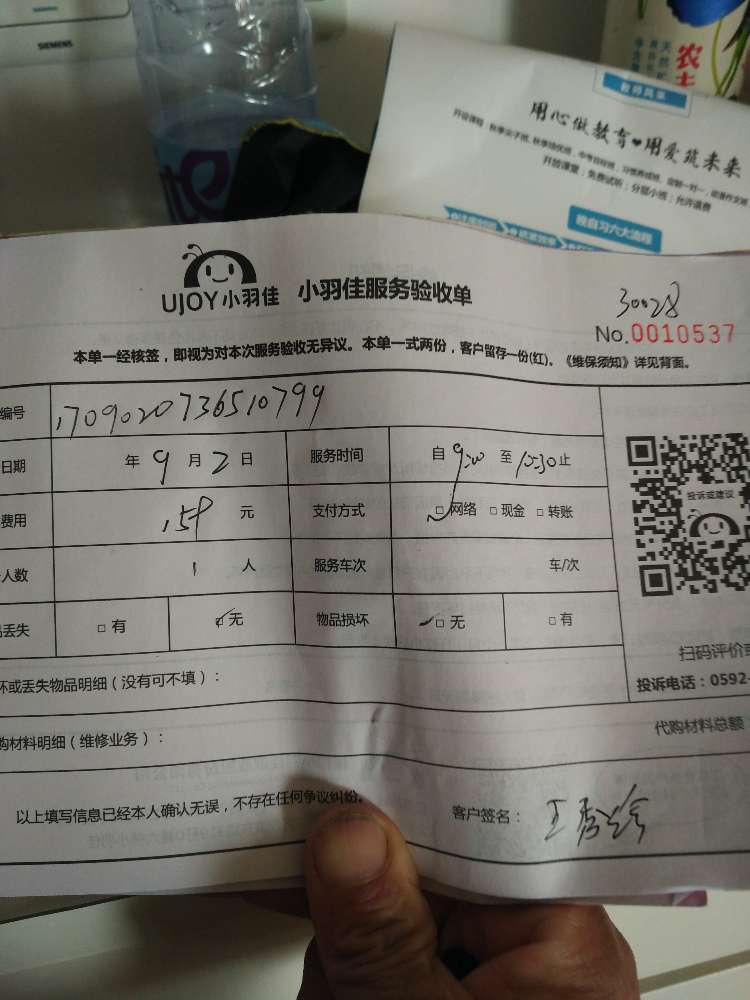 SIEMENS
农夫
教师风采
用心做教育❤用爱筑未来
开放课堂;免费试听;分层小班;允许退费
晚自习六大流程
UJOY小羽佳 小羽佳服务验收单
30028
No.0010537
本单一经核签,即视为对本次服务验收无异议。本单一式两份,客户留存一份(红)。《维保须知》详见背面。
编号 1709020736510799
日期 年 9 月 2 日 服务时间 自 9:00 至 15:30 止
费用 158 元 支付方式 □网络 □现金 □转账
人数 1 人 服务车次 车/次
丢失 □有 □无 物品损坏 □无 □有
投诉或建议
扫码评价或
投诉电话:0592-
坏或丢失物品明细(没有可不填):
购材料明细(维修业务): 代购材料总额
以上填写信息已经本人确认无误,不存在任何争议纠纷。 客户签名: 王秀珍